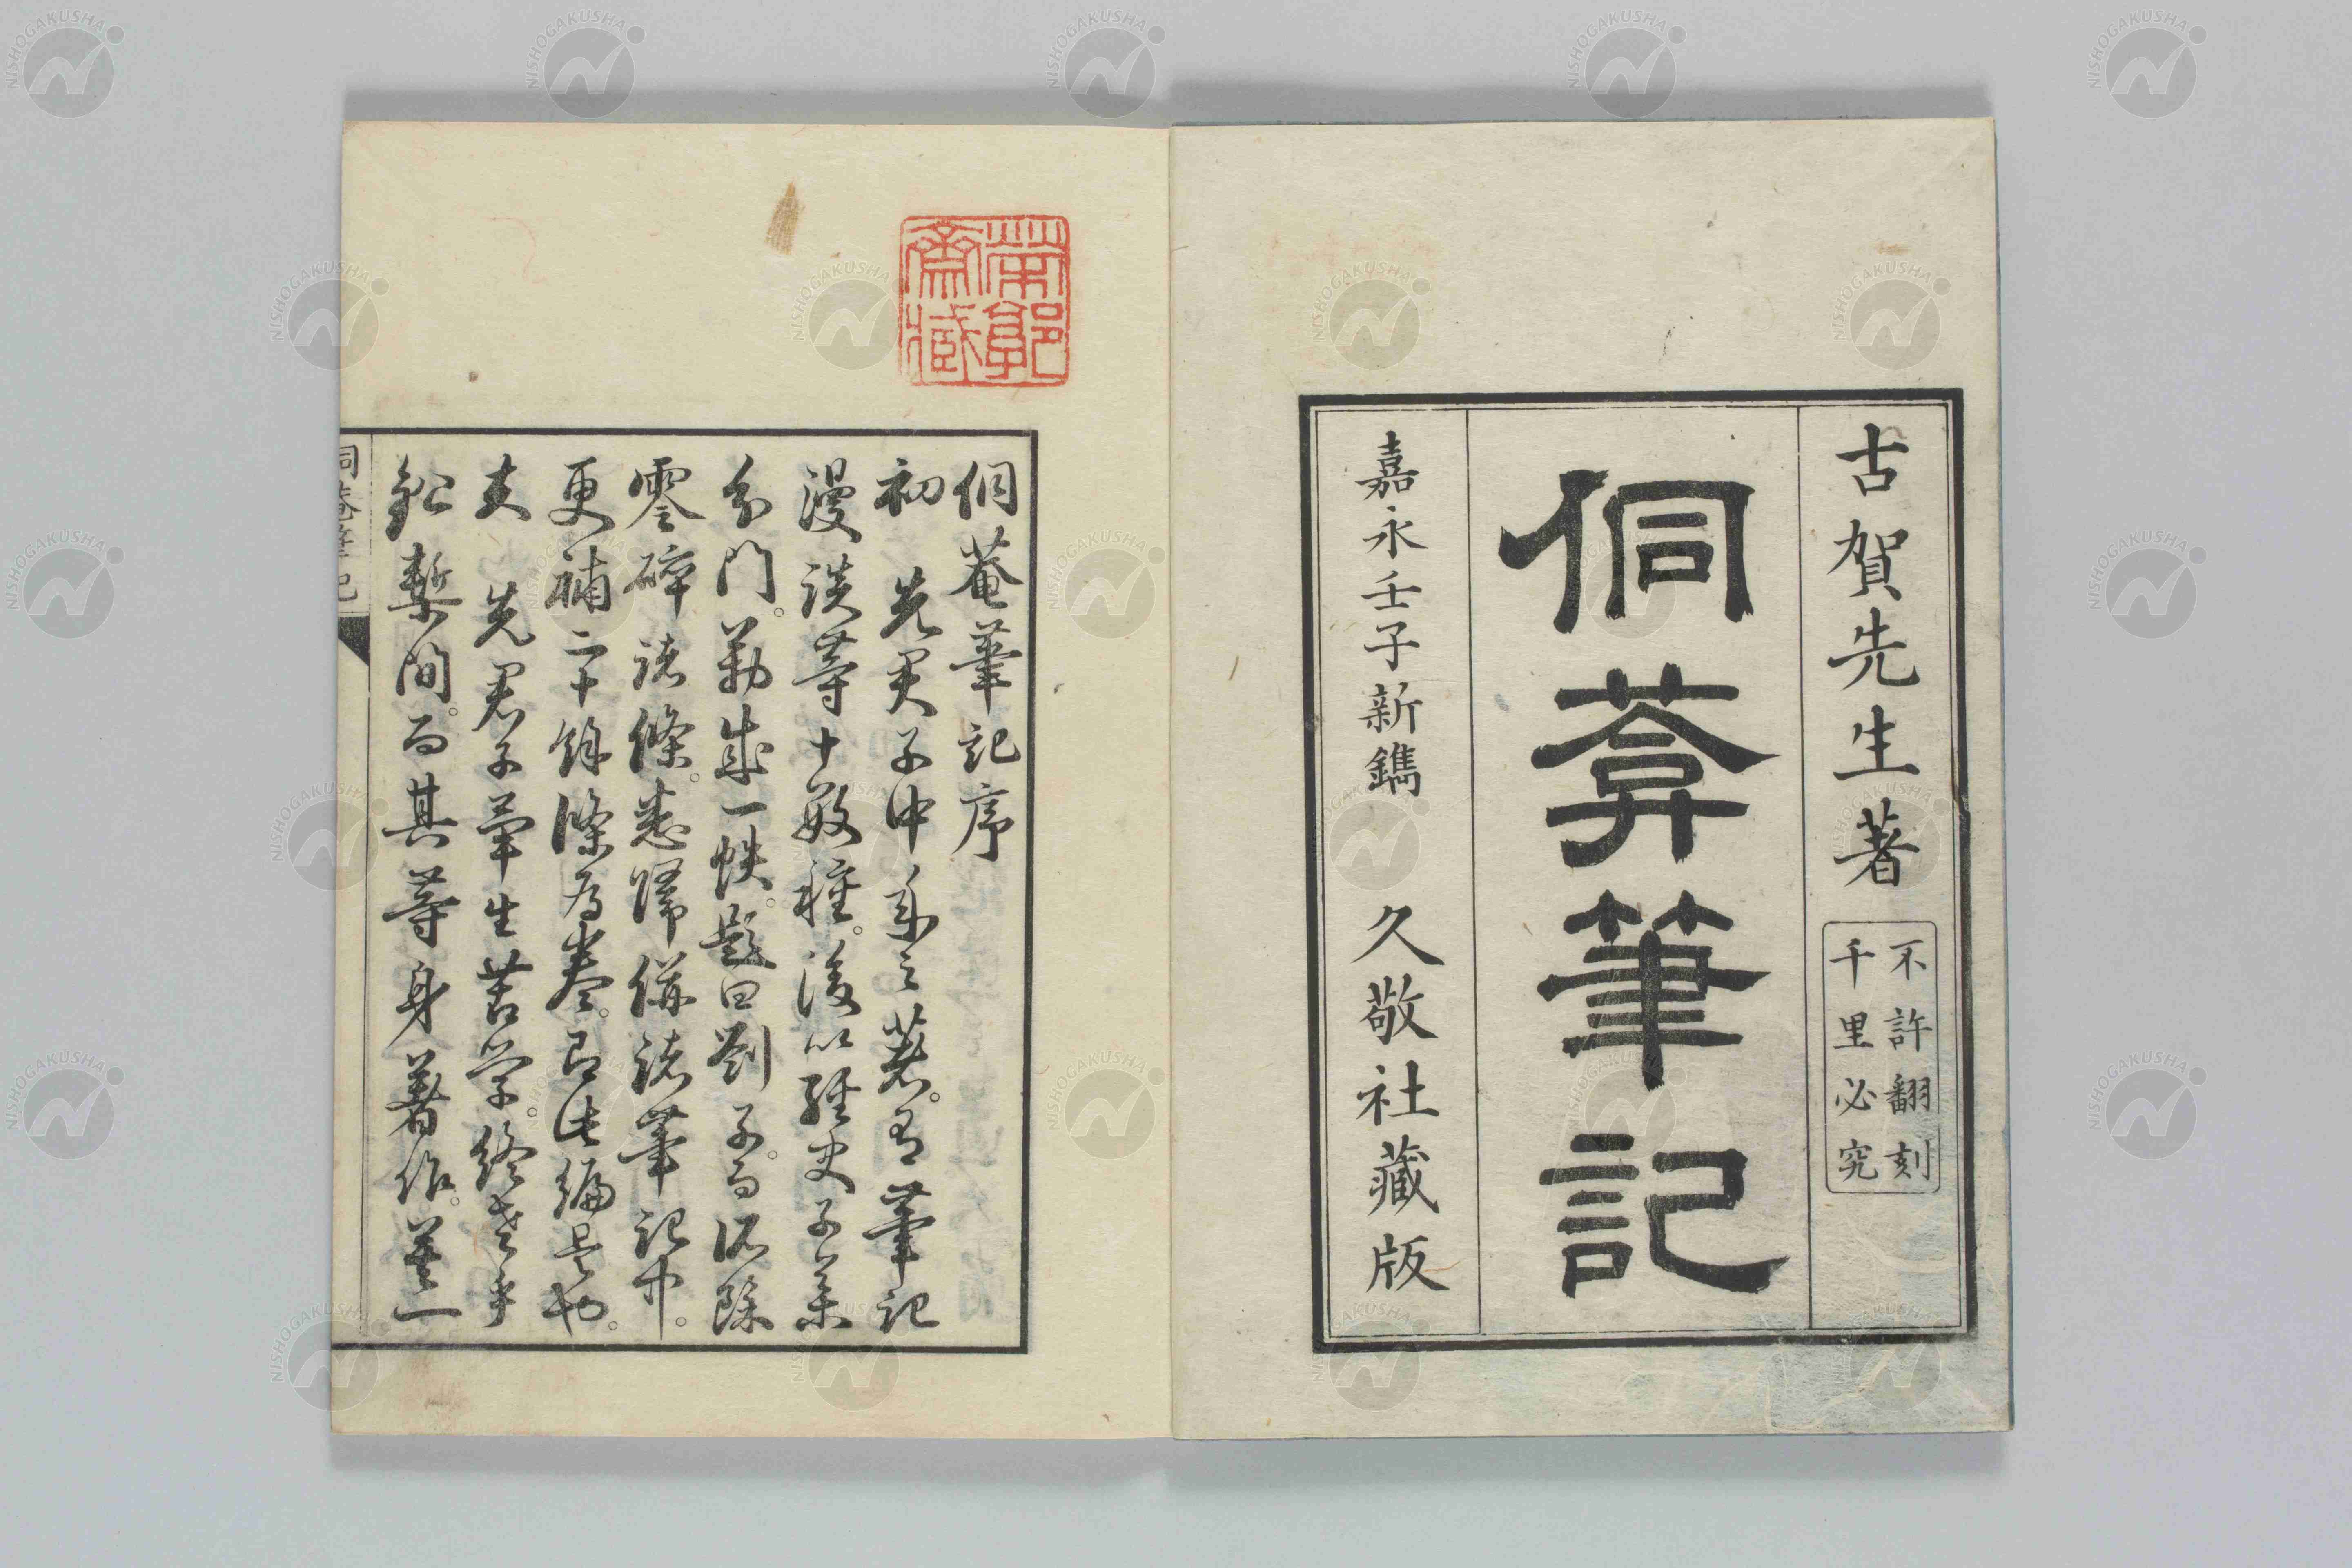 古賀先生著
不許翻刻
千里必究
侗葊筆記
嘉永壬子新鐫 久敬社藏版
侗菴筆記序
初 先君子中年之著。有筆記
漫談等十數種。後以經史子集
分門。勒成一帙。題曰劉子。而所餘
零碎諸條。悉歸併諸筆記中。
更補二十餘條為卷。即此編是也。
夫 先君子畢生苦学。終老乎
鉛槧間。而其等身著作。莫一
侗菴筆記
NISHOGAKUSHA